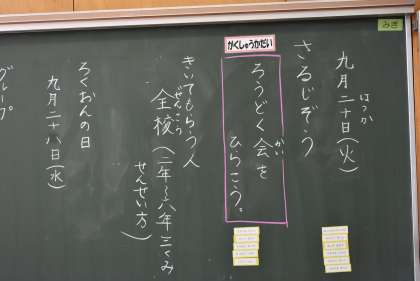 みぎ
九月二十日(火)
はつか
さるじぞう
がくしゅうかだい
ろうどく会を
かい
ひらこう。
きいてもらう人
全校(二年〜六年三くみ
ぜんこう
せんせい方)
ろくおんの日
九月二十八日(水)
グループ